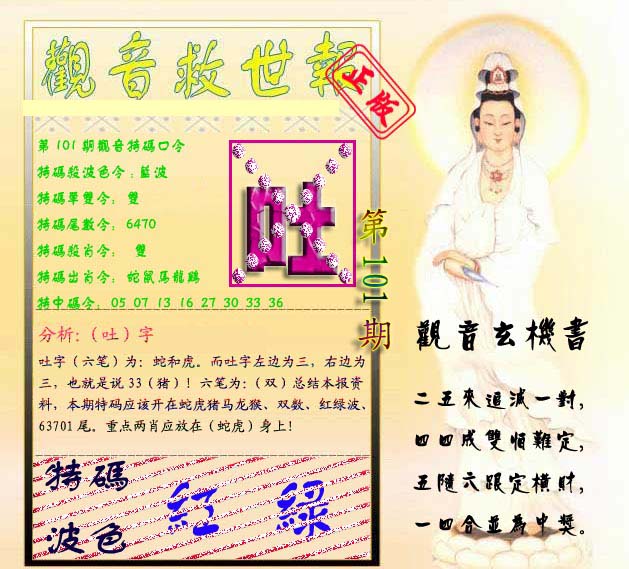 觀音救世報
正版
第101期觀音特碼口令
特碼殺波色令：藍波
特碼單雙令： 雙
特碼尾數令： 6470
特碼殺肖令： 雙
特碼出肖令： 蛇鼠馬龍鷄
特中碼令： 05 07 13 16 27 30 33 36
吐
第101期
分析：（吐）字
吐字（六笔）为：蛇和虎。而吐字左边为三，右边为
三，也就是说 33（猪）！六笔为：（双）总结本报资
料，本期特码应该开在蛇虎猪马龙猴、双数、红绿波、
63701 尾。重点两肖应放在（蛇虎）身上！
特碼
波色
紅 綠
觀音玄機書
二五來追減一對，
四四成雙恒難定，
五隨六跟定橫財，
一四合並為中獎。